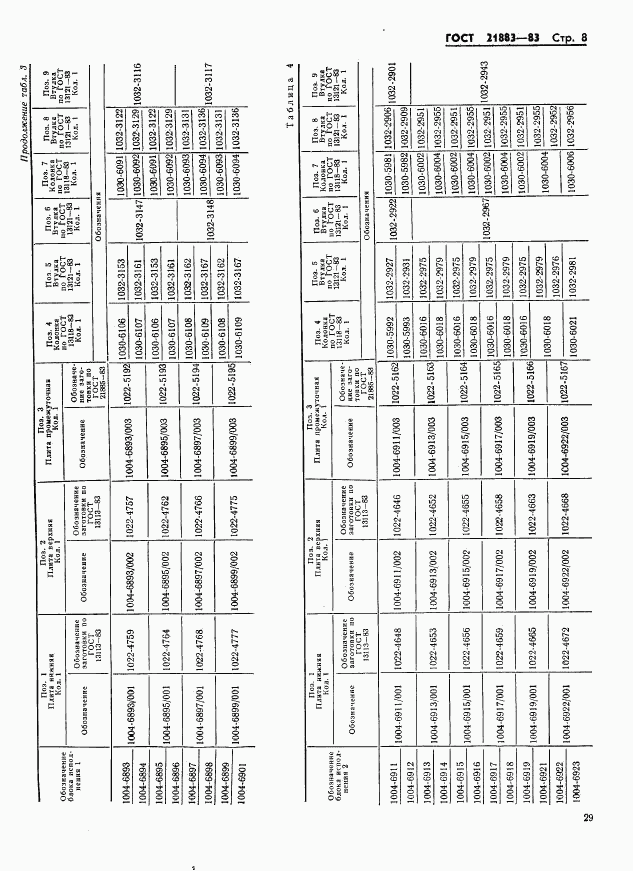 ГОСТ 21883—83 Стр. 8
Продолжение табл. 3
Обозначение блока исполнения 1
Поз. 1 Плита нижняя Кол. 1
Поз. 2 Плита верхняя Кол. 1
Поз. 3 Плита промежуточная Кол. 1
Поз. 4 Колонка по ГОСТ 13118—83 Кол. 1
Поз. 5 Втулка по ГОСТ 13121—83 Кол. 1
Поз. 6 Втулка по ГОСТ 13121—83 Кол. 1
Поз. 7 Колонка по ГОСТ 13118—83 Кол. 1
Поз. 8 Втулка по ГОСТ 13121—83 Кол. 1
Поз. 9 Втулка по ГОСТ 13121—83 Кол. 1
Обозначение
Обозначение заготовки по ГОСТ 13113—83
Обозначение
Обозначение заготовки по ГОСТ 13113—83
Обозначение
Обозначение заготовки по ГОСТ 21885—83
Обозначения
1004-6893 1004-6893/001 1022-4759 1004-6893/002 1022-4757 1004-6893/003 1022-5192 1030-6106 1032-3153 1032-3147 1030-6091 1032-3122 1032-3116
1004-6894 1030-6107 1032-3161 1030-6092 1032-3129
1004-6895 1004-6895/001 1022-4764 1004-6895/002 1022-4762 1004-6895/003 1022-5193 1030-6106 1032-3153 1030-6091 1032-3122
1004-6896 1030-6107 1032-3161 1030-6092 1032-3129
1004-6897 1004-6897/001 1022-4768 1004-6897/002 1022-4766 1004-6897/003 1022-5194 1030-6108 1032-3162 1032-3148 1030-6093 1032-3131 1032-3117
1004-6898 1030-6109 1032-3167 1030-6094 1032-3136
1004-6899 1004-6899/001 1022-4777 1004-6899/002 1022-4775 1004-6899/003 1022-5195 1030-6108 1032-3162 1030-6093 1032-3131
1004-6901 1030-6109 1032-3167 1030-6094 1032-3136
Таблица 4
Обозначение блока исполнения 2
Поз. 1 Плита нижняя Кол. 1
Поз. 2 Плита верхняя Кол. 1
Поз. 3 Плита промежуточная Кол. 1
Поз. 4 Колонка по ГОСТ 13118—83 Кол. 1
Поз. 5 Втулка по ГОСТ 13121—83 Кол. 1
Поз. 6 Втулка по ГОСТ 13121—83 Кол. 1
Поз. 7 Колонка по ГОСТ 13118—83 Кол. 1
Поз. 8 Втулка по ГОСТ 13121—83 Кол. 1
Поз. 9 Втулка по ГОСТ 13121—83 Кол. 1
Обозначение
Обозначение заготовки по ГОСТ 13113—83
Обозначение
Обозначение заготовки по ГОСТ 13113—83
Обозначение
Обозначение заготовки по ГОСТ 21885—83
Обозначения
1004-6911 1004-6911/001 1022-4648 1004-6911/002 1022-4646 1004-6911/003 1022-5162 1030-5992 1032-2927 1032-2922 1030-5981 1032-2906 1032-2901
1004-6912 1030-5993 1032-2931 1030-5982 1032-2909
1004-6913 1004-6913/001 1022-4653 1004-6913/002 1022-4652 1004-6913/003 1022-5163 1030-6016 1032-2975 1032-2967 1030-6002 1032-2951 1032-2943
1004-6914 1030-6018 1032-2979 1030-6004 1032-2955
1004-6915 1004-6915/001 1022-4656 1004-6915/002 1022-4655 1004-6915/003 1022-5164 1030-6016 1032-2975 1030-6002 1032-2951
1004-6916 1030-6018 1032-2979 1030-6004 1032-2955
1004-6917 1004-6917/001 1022-4659 1004-6917/002 1022-4658 1004-6917/003 1022-5165 1030-6016 1032-2975 1030-6002 1032-2951
1004-6918 1030-6018 1032-2979 1030-6004 1032-2955
1004-6919 1004-6919/001 1022-4665 1004-6919/002 1022-4663 1004-6919/003 1022-5166 1030-6016 1032-2975 1030-6002 1032-2951
1004-6921 1030-6018 1032-2979 1030-6004 1032-2955
1004-6922 1004-6922/001 1022-4672 1004-6922/002 1022-4668 1004-6922/003 1022-5167 1032-2976 1032-2952
1004-6923 1030-6021 1032-2981 1030-6006 1032-2956
29